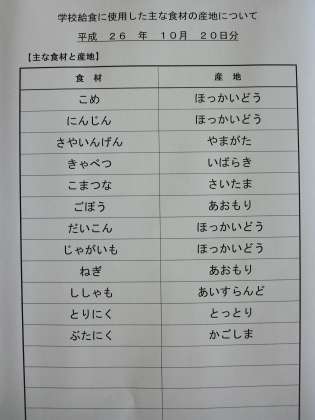 学校給食に使用した主な食材の産地について
平成 26 年 10月 20日分
【主な食材と産地】
食 材 産 地
こめ ほっかいどう
にんじん ほっかいどう
さやいんげん やまがた
きゃべつ いばらき
こまつな さいたま
ごぼう あおもり
だいこん ほっかいどう
じゃがいも ほっかいどう
ねぎ あおもり
ししゃも あいすらんど
とりにく とっとり
ぶたにく かごしま